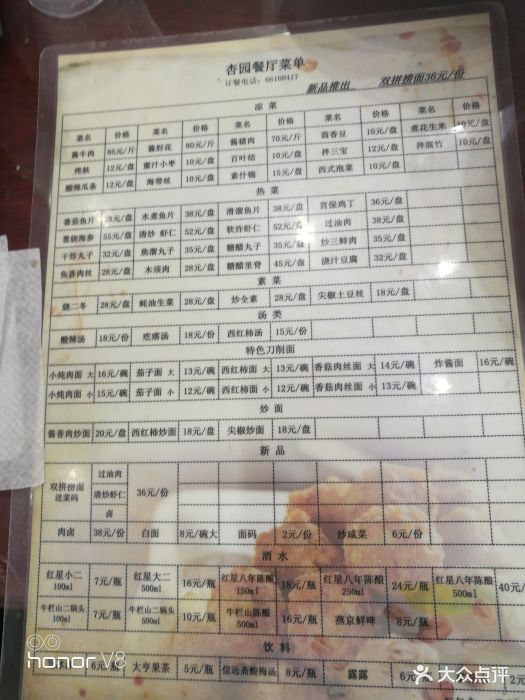 杏园餐厅菜单
订餐电话：66168417
新品推出 双拼捞面36元/份
凉菜
菜名 价格 菜名 价格 菜名 价格 菜名 价格 菜名 价格
酱牛肉 85元/斤 酱肘花 80元/斤 酱猪肉 70元/斤 茴香豆 10元/盘 煮花生米 10元/盘
烤麸 12元/盘 蜜汁小枣 10元/盘 百叶结 10元/盘 拌三宝 12元/盘 拌腐竹 10元/盘
酸辣瓜条 12元/盘 海带丝 10元/盘 素什锦 15元/盘 西式泡菜 10元/盘
热菜
番茄鱼片 38元/盘 水煮鱼片 38元/盘 滑溜鱼片 38元/盘 宫保鸡丁 36元/盘
葱烧海参 55元/盘 清炒虾仁 52元/盘 软炸虾仁 52元/盘 过油肉 38元/盘
干炸丸子 32元/盘 焦溜丸子 35元/盘 糖醋丸子 35元/盘 炒三鲜肉 35元/盘
鱼香肉丝 28元/盘 木须肉 28元/盘 糖醋里脊 45元/盘 浇汁豆腐 32元/盘
素菜
烧二冬 28元/盘 蚝油生菜 28元/盘 炒全素 28元/盘 尖椒土豆丝 18元/盘
汤类
酸辣汤 18元/份 疙瘩汤 18元/份 西红柿汤 15元/份
特色刀削面
小炖肉面 大 16元/碗 茄子面 大 13元/碗 西红柿面 大 13元/碗 香菇肉丝面 大 14元/碗 炸酱面 16元/碗
小炖肉面 小 15元/碗 茄子面 小 12元/碗 西红柿面 小 12元/碗 香菇肉丝面 小 13元/碗
炒面
酱香肉炒面 20元/盘 西红柿炒面 18元/盘 尖椒炒面 18元/盘
新品
双拼捞面送菜码 过油肉 清炒虾仁 卤 36元/份
肉卤 38元/份 白面 8元/碗大 面码 2元/份 炒咸菜 6元/份
酒水
红星小二 100ml 7元/瓶 红星大二 500ml 16元/瓶 红星八年陈酿 150ml 18元/瓶 红星八年陈酿 250ml 24元/瓶 红星八年陈酿 500ml 40元/
牛栏山二锅头 100ml 7元/瓶 牛栏山二锅头 500ml 10元/瓶 牛栏山陈酿 500ml 16元/瓶 燕京鲜啤 8元/瓶
饮料
6元/瓶 大亨果茶 5元/瓶 信远斋酸梅汤 8元/瓶 露露 6元/
honor V8
大众点评